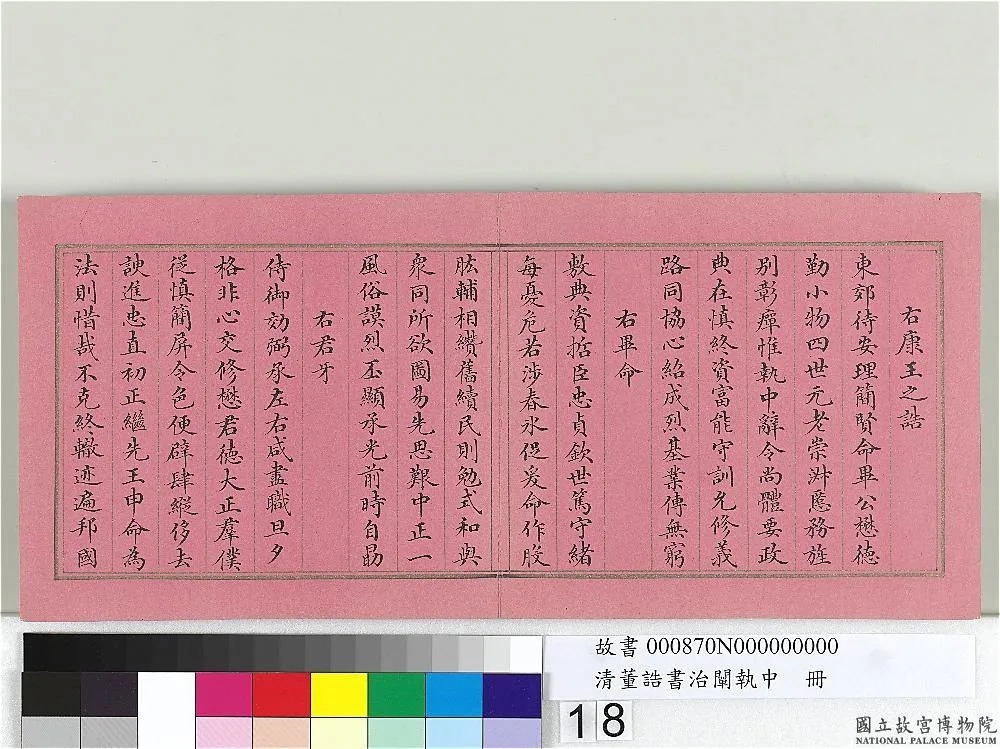 右康王之誥
東郊待安理簡賢命畢公懋德
勤小物四世元老崇淑慝務旌
別彰癉惟執中辭令尚體要政
典在慎終資富能守訓允修義
路同協心紹成烈基業傳無窮
右畢命
敷典資喆臣忠貞欽世篤守緒
每憂危若涉春冰促爰命作股
肱輔相纘舊續民則勉式和與
衆同所欲圖易先思艱中正一
風俗謨烈丕顯承光前時自勖
右君牙
侍御効弼承左右咸盡職旦夕
格非心交修懋君德大正羣僕
從慎簡屏令色便辟肆縱侈去
諛進忠直初正繼先王申命為
法則惜哉不克終轍迹遍邦國
故書 000870N000000000
清董誥書治闡執中 冊
18
國立故宮博物院
NATIONAL PALACE MUSEUM